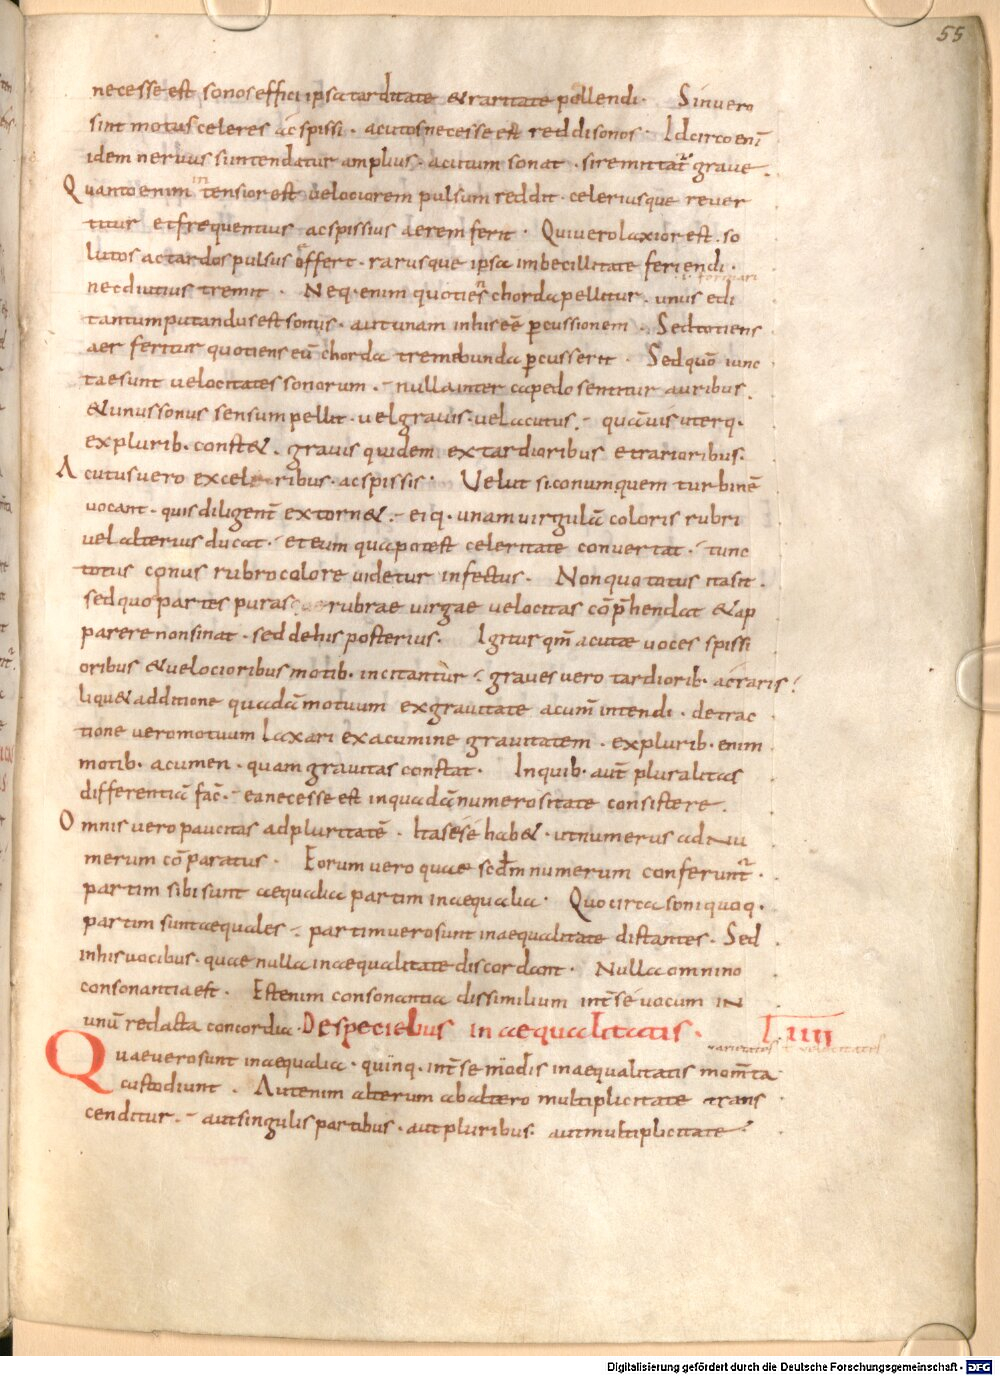 55
necesse est sonos effici ipsa tarditate & raritate pellendi. Sinvero
sint motus celeres ac spissi. acutos necesse est reddi sonos. Idcirco eni͞
idem nervus si intendatur amplius. acutum sonat. si remittat᷑ grave.
Quanto enim in tensior est velociorem pulsum reddit. celeriusque rever
titur et frequentius ac spissius aerem ferit. Qui vero laxior est. so
lutos ac tardos pulsus offert. rarusque ipsa imbecillitate feriendi.
nec diutius tremit. Neq. enim quotiens chorda pellitur. unus edi
tantum putandus est sonus. aut unam in his eē ꝑcussionem. Sed totiens
aer feritur quotiens eū chorda tremebunda ꝑcusserit. Sed quō iunc
tae sunt velocitates sonorum. nulla inter capedo sentitur auribus.
& unus sonus sensum pellit. vel gravis. vel acutus. quāvis uterq.
ex plurib. const&. gravis quidem ex tardioribus et rarioribus.
Acutus vero ex celeribus. ac spissis. Velut si conum quem turbinē
vocant. quis diligent͞ extorn&. eiq. unam virgulā coloris rubri
vel alterius ducat. et eum qua potest celeritate convertat. tunc
totus conus rubro colore videtur infectus. Non quo totus ita sit.
sed quo partes puras rubrae virgae velocitas cōp̄hendat & ap
parere non sinat. sed de his posterius. Igitur qm̄ acutae voces spissi
oribus & velocioribus motib. incitantur. graves vero tardiorib. ac raris.
liqu& additione quadā motuum ex gravitate acum̄ intendi. detrac
tione vero motuum laxari ex acumine gravitatem. ex plurib. enim
motib. acumen. quam gravitas constat. In quib. aut͞ pluralitas
differentiā fac̄. ea necesse est in quadā numerositate consistere.
Omnis vero paucitas ad pluritatē. ita sese hab&. ut numerus ad nu
merum cōparatus. Eorum vero quae scd̄m numerum conferunt᷑.
partim sibi sunt aequalia partim inaequalia. Quocirca soni quoq.
partim sunt aequales. partim vero sunt inaequalitate distantes. Sed
in his vocibus. quae nulla inaequalitate discordant. Nulla omnino
consonantia est. Est enim consonantia dissimilium int͞ se vocum in
unū redacta concordia. De speciebus inaequalitatis. IIII
Quae vero sunt inaequalia. quinq. int͞ se modis inaequalitatis mom̄ta
custodiunt. Aut enim alterum ab altero multiplicitate trans
cenditur. aut singulis partibus. aut pluribus. aut multiplicitate
Digitalisierung gefördert durch die Deutsche Forschungsgemeinschaft - DFG